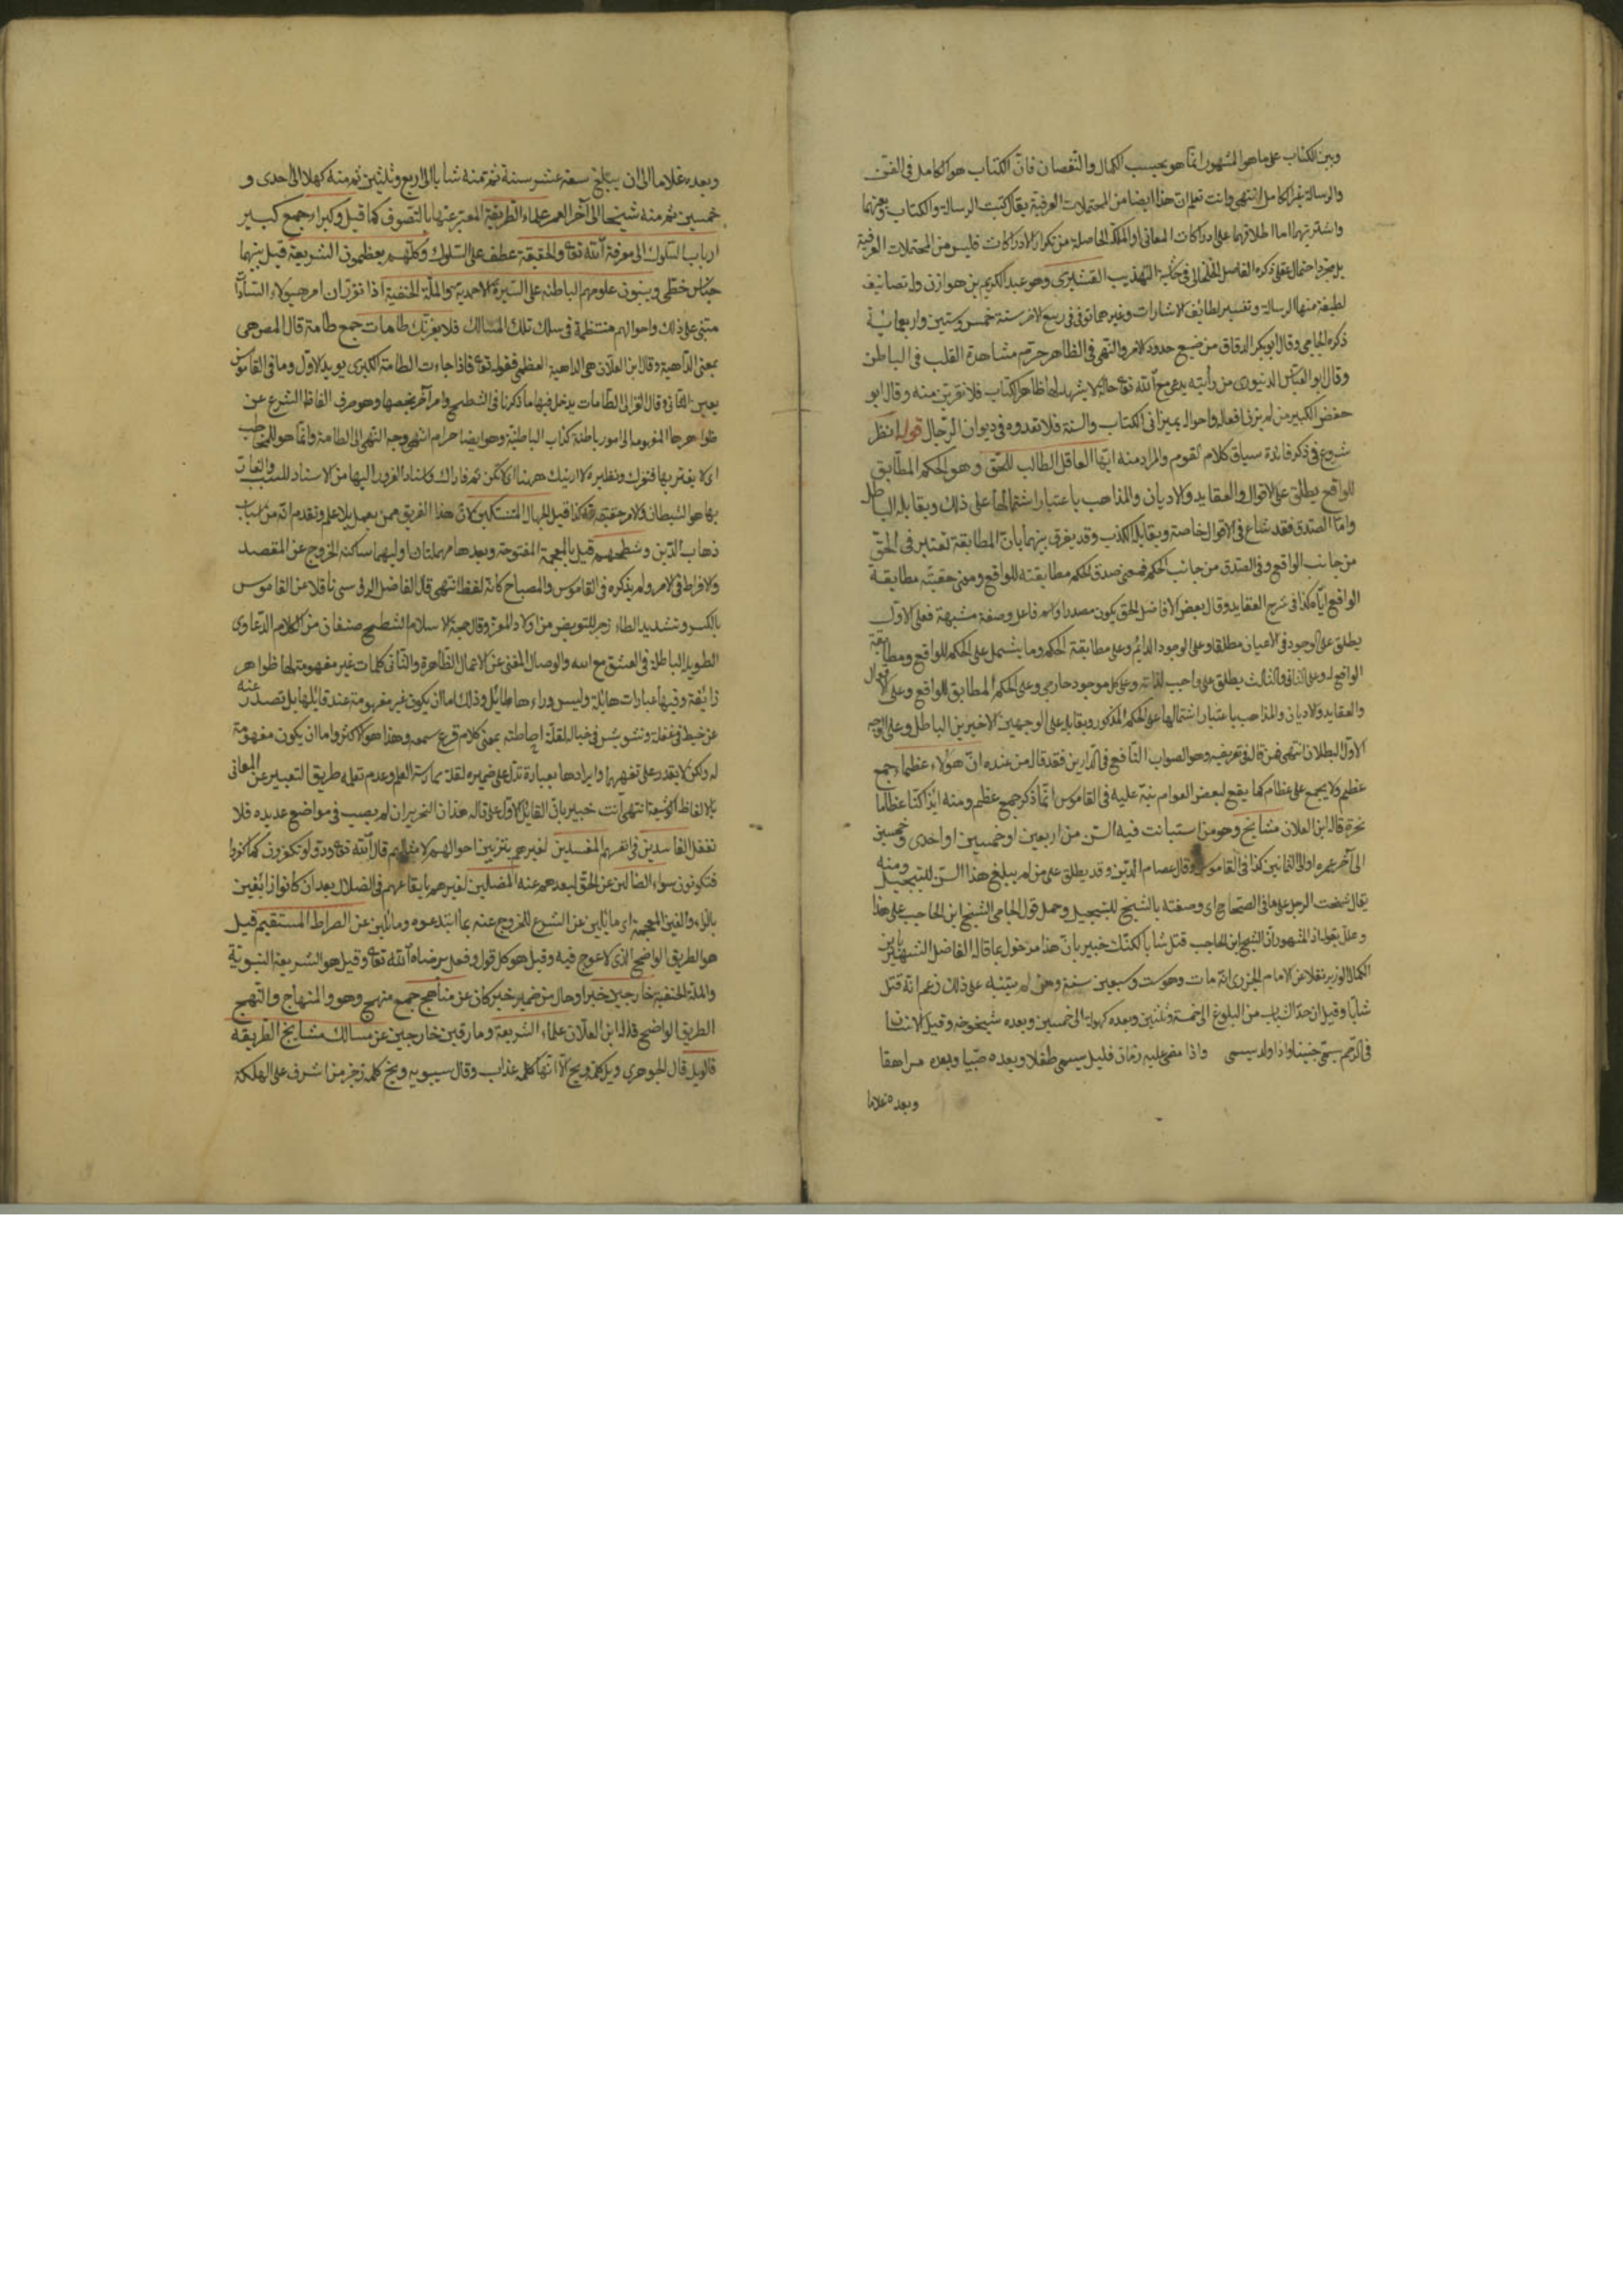 وبين الكتاب على ماهو المشهور انما هو بحسب الكمال والنقصان فان الكتاب هو الكامل فى الفن
والرسالة غير الكامل انتهى وانت تعلم ان هذا ايضا من المحتملات العرفية يقال كتبت الرسالة والكتاب وبعثتهما
واشتريتهما اما اطلاقهما على ادراكات المعانى او الملكة الحاصلة من تكرار الادراكات فليس من المحتملات العرفية
بل مجرد احتمال عقلى ذكره الفاضل الخلخالى فى حاشية التهذيب القشيرى وهو عبد الكريم بن هوازن وله تصانيف
لطيفة منها الرسالة وتفسير لطائف الاشارات وغيرهما توفى فى ربيع الاخر سنة خمس وستين واربعمائة
ذكره الجامى وقال ابوبكر الدقاق من ضيع حدود الامر والنهى فى الظاهر حرم مشاهدة القلب فى الباطن
وقال ابو العباس الدينورى من رأيته يدعى مع الله تعا حالة لا يشهد لها ظاهر الكتاب فلا تقربن منه وقال ابو
حفص الكبير من لم يزن افعاله واحواله بميزانى الكتاب والسنة فلا تعدوه فى ديوان الرجال قوله انظر
شروع فى ذكر فائدة سياق كلام القوم والمراد منه ايها العاقل الطالب للحق وهو الحكم المطابق
للواقع يطلق على الاقوال والعقايد والاديان والمذاهب باعتبار اشتمالها على ذلك ويقابله الباطل
واما الصدق فقد شاع فى الاقوال خاصة ويقابله الكذب وقد يفرق بينهما بان المطابقة تعتبر فى الحق
من جانب الواقع وفى الصدق من جانب الحكم فمعنى صدق الحكم مطابقته للواقع ومعنى حقيته مطابقة
الواقع اياه كذا فى شرح العقايد وقال بعض الافاضل الحق يكون مصدرا واسم فاعل وصفة مشبهة فعلى الاول
يطلق على الوجود فى الاعيان مطلقا وعلى الوجود الدايم وعلى مطابقة الحكم وما يشتمل على الحكم للواقع ومطابقة
الواقع له وعلى الثانى والثالث يطلق على واجب لذاته وعلى كل موجود خارجى وعلى الحكم المطابق للواقع وعلى الاقوال
والعقايد والاديان والمذاهب باعتبار اشتمالها على الحكم المذكور ويقابله على الوجهين الاخيرين الباطل وعلى الوجه
الاول البطلان انتهى فمن قال فى تعريفه وهو الصواب النافع فى الدارين فقد قال من عنده ان هؤلاء عظماء جمع
عظيم ولا يجمع على عظام كما يقع لبعض العوام نبه عليه فى القاموس انما ذكر جمع عظيم ومنه ائذا كنا عظاما
نخرة قاله ابن العلان مشايخ وهو من استبانت فيه السن من اربعين او خمسين او احدى وخمسين
الى آخر عمره او الى الثمانين كذا فى القاموس وقال عصام الدين وقد يطلق على من لم يبلغ هذا السن للتبجيل ومنه
يقال شيخت الرجل على ما فى الصحاح اى وصفته بالشيخ للتبجيل وحمل قول الجامى الشيخ ابن الحاجب على هذا
وعلل بقوله اذ المشهور ان الشيخ ابن الحاجب قتل شابا لكنك خبير بان هذا مدخول بما قاله الفاضل الشهير بابن
الكمال الوزير نقلا عن الامام الجزرى انه مات وهو ست وسبعين سنة وهن لم يتنبه على ذلك زعم انه قتل
شابا وقيل ان حد الشباب من البلوغ الى خمسة وثلثين وبعده كهولة الى خمسين وبعده شيخوخة وقيل الانسان
فى الرحم يسمى جنينا واذا ولد يسمى واذا مضى عليه زمان قليل يسمى طفلا وبعده صبيا وبعده مراهقا
وبعده غلاما
وبعده غلاما الى ان يبلغ سبعة عشر سنة ثم منه شابا الى اربع وثلثين ثم منه كهلا الى احدى و
خمسين ثم منه شيخا الى آخر العمر علماء الطريقة المعبر عنها بالتصوف كما قيل وكبراء جمع كبير
ارباب السلوك الى معرفة الله تعا والحقيقة عطف على السلوك وكلهم يعظمون الشريعة قيل بينهما
جناس خطى ويبنون علومهم الباطنة على السيرة الاحمدية والملة الحنفية اذا تقرر ان امر هؤلاء السادات
مبنى على ذلك واحوالهم منتظمة فى سلك تلك المسالك فلا يغرنك طامات جمع طامة قال المص هى
بمعنى الداهية وقال ابن العلان هى الداهية العظمى فقوله تعا فاذا جاءت الطامة الكبرى يؤيد الاول وما فى القاموس
يعين الثانى وقال الغزالى الطامات يدخل فيها ما ذكرنا فى الشطح وامر آخر يخصها وهو صرف الفاظ الشرع عن
ظواهرها المفهومة الى امور باطنة كذاب الباطنية وهو ايضا حرام انتهى وجه النهى الى الطامة وانما هو للمخاطب
اى لا يغتر بها فتتوك ونظيره لا ارينك ههنا اى لا تكن ثمه فاراك واسناد الغرور اليها من الاسناد للسبب والغار
بها هو الشيطان والامر حقيقة لله كذا قيل الجهال المتنسكين لان هذا الفريق ممن يعمل بلا علم وتقدم انه من اسباب
ذهاب الدين وشطحهم قيل بالمعجمة المفتوحة وبعدها مهملتان اوليهما ساكنة الخروج عن المقصد
والافراط فى الامر ولم يذكره فى القاموس والمصباح كانه لفظ انتهى قال الفاضل الوفى سى ناقلا عن القاموس
بالكسر وتشديد الطاء زجر للتويض من اولاد المعز وقال حجة الاسلام الشطح صنفان من الكلام الدعاوى
الطويلة الباطلة فى العشق مع الله والوصال المغنى عن الاعمال الظاهرة والثانى كلمات غير مفهومة لها ظواهر
زايقة وفيها عبارات هايلة وليس وراءها طائل وذلك اما ان يكون غير مفهومة عند قايلها بل يصدر عنه
عن خبط فى عقله وتشويش فى خياله لقلة احاطته بمعنى كلام قرع سمعه وهذا هو الاكثر واما ان يكون مفهومة
له ولكن لا يقدر على تفهيمها وايرادها بعبارة تدل على ضميره لقلة ممارسة العلم وعدم تعلمه طريق التعبير عن المعانى
بالالفاظ الرشيقة انتهى انت خبير بان القايل الاول على قاله هذان النحريران لم يصب فى مواضع عديدة فلا
تغفل الفاسدين فى انفسهم المفسدين لغيرهم بتزيين احوالهم لامثالهم قال الله تعا ودوا لو تكفرون كما كفروا
فتكونون سواء الضالين عن الحق لبعدهم عنه المضلين لغيرهم بايقاعهم فى الضلال بعد ان كانوا زائغين
بالزاء والغين المعجمة اى مائلين عن الشرع للخروج عنه بما ابتدعوه ومائلين عن الصراط المستقيم قيل
هو الطريق الواضح الذى لا عوج فيه وقيل هو كل قول وفعل يرضاه الله تعا وقيل هو الشريعة النبوية
والملة الحنفية خارجين خبر او حال من ضمير خبر كان عن مناهج جمع منهج وهو والمنهاج والنهج
الطريق الواضح قاله ابن العلان علماء الشريعة ومارقين خارجين عن مسالك مشايخ الطريقة
فالويل قال الجوهرى ويل كلمة ويح الا انها كلمة عذاب وقال سيبويه ويح كلمة زجر من اشرف على الهلكة